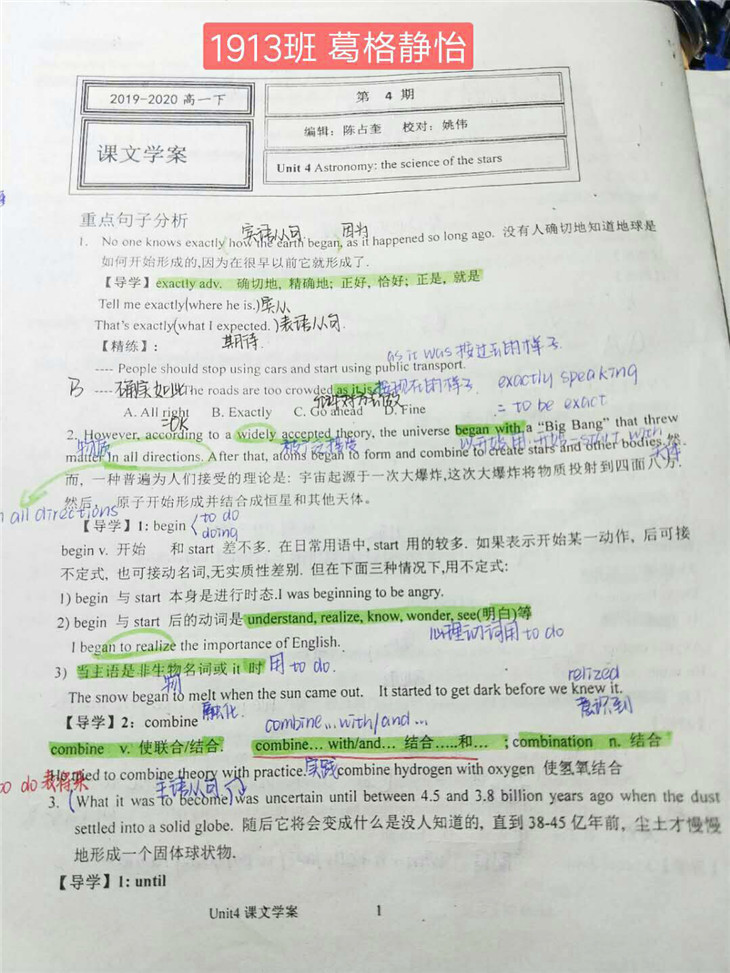 1913班 葛格静怡
2019-2020 高一下
第 4 期
课文学案
编辑：陈占奎 校对：姚伟
Unit 4 Astronomy: the science of the stars
重点句子分析
宾语从句 因为
1. No one knows exactly how the earth began, as it happened so long ago. 没有人确切地知道地球是
如何开始形成的,因为在很早以前它就形成了.
【导学】exactly adv. 确切地, 精确地; 正好, 恰好; 正是, 就是
Tell me exactly(where he is.)宾从
That's exactly(what I expected.)表语从句.
【精练】: 期待.
as it was 按过去的样子.
---- People should stop using cars and start using public transport.
B ---- 确实如此 The roads are too crowded as it is. 按现在的样子. exactly speaking
A. All right B. Exactly C. Go ahead D. Fine = to be exact
=OK
2. However, according to a widely accepted theory, the universe began with a “Big Bang” that threw
物质
matter in all directions. After that, atoms began to form and combine to create stars and other bodies. 然
天体
而, 一种普遍为人们接受的理论是: 宇宙起源于一次大爆炸,这次大爆炸将物质投射到四面八方.
然后, 原子开始形成并结合成恒星和其他天体。
in all directions
【导学】1: begin to do
doing
begin v. 开始 和 start 差不多. 在日常用语中, start 用的较多. 如果表示开始某一动作, 后可接
不定式, 也可接动名词,无实质性差别. 但在下面三种情况下,用不定式:
1) begin 与 start 本身是进行时态.I was beginning to be angry.
2) begin 与 start 后的动词是 understand, realize, know, wonder, see(明白)等
心理动词用 to do
I began to realize the importance of English.
3) 当主语是非生物名词或 it 时 用 to do.
物 relized
The snow began to melt when the sun came out. It started to get dark before we knew it.
融化. 意识到
【导学】2: combine combine...with/and...
combine v. 使联合/结合. combine... with/and... 结合.....和... ; combination n. 结合
He tried to combine theory with practice.实践 combine hydrogen with oxygen 使氢氧结合
to do 表将来 主语从句
3. (What it was to become) was uncertain until between 4.5 and 3.8 billion years ago when the dust
settled into a solid globe. 随后它将会变成什么是没人知道的, 直到 38-45 亿年前, 尘土才慢慢
地形成一个固体球状物.
【导学】1: until
Unit4 课文学案 1